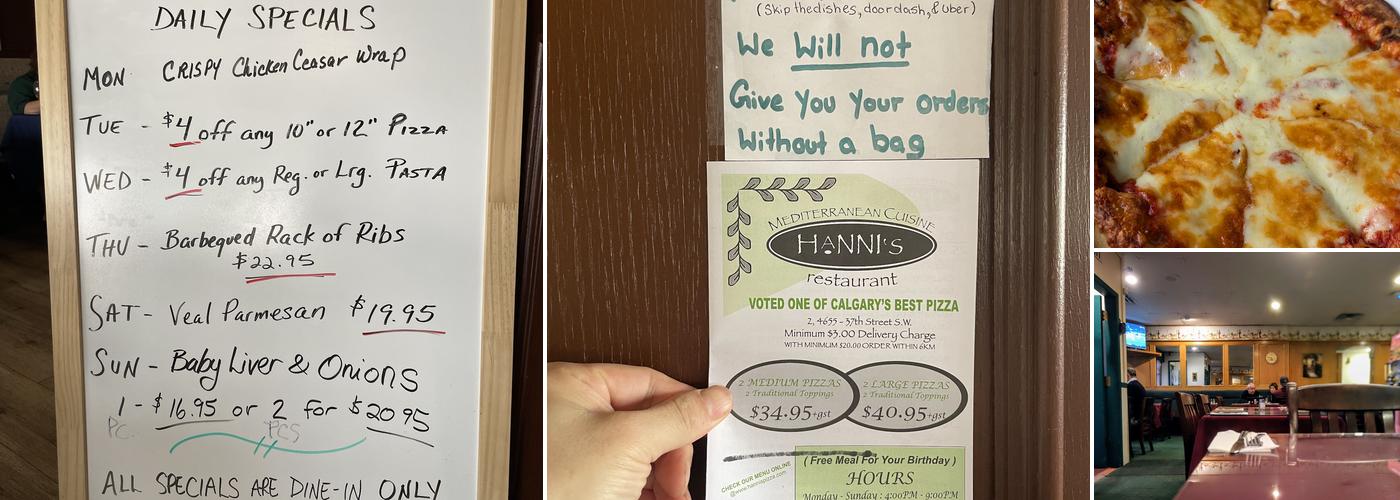 DAILY SPECIALS
MON CRISPY Chicken Ceasar Wrap
TUE - $4 off any 10" or 12" PIZZA
WED - $4 off any Reg. or Lrg. PASTA
THU - Barbequed Rack of Ribs
$22.95
SAT - Veal Parmesan $19.95
SUN - Baby Liver & Onions
1 - $16.95 or 2 for $20.95
PC. PCS
ALL SPECIALS ARE DINE-IN ONLY
(Skipthedishes, doordash, & Uber)
We Will not
Give You Your orders
Without a bag
MEDITERRANEAN CUISINE
HANNI'S
restaurant
VOTED ONE OF CALGARY'S BEST PIZZA
2, 4655 - 37th Street S.W.
Minimum $3.00 Delivery Charge
WITH MINIMUM $20.00 ORDER WITHIN 6KM
2 MEDIUM PIZZAS
2 Traditional Toppings
$34.95+gst
2 LARGE PIZZAS
2 Traditional Toppings
$40.95+gst
CHECK OUR MENU ONLINE
@www.hannispizza.com
(Free Meal For Your Birthday)
HOURS
Monday - Sunday : 4:00PM - 9:00PM